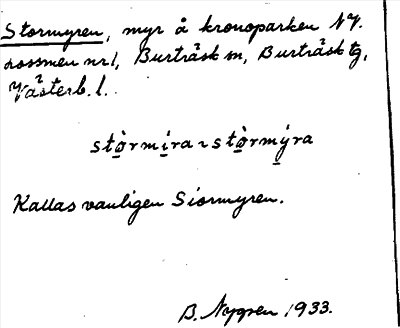 Stormyren, myr å kronoparken Ny.
nr 1, Burträsk sn, Burträsk tg,
Västerb. l.
stòrmíra ~ stòrmýra
Kallas vanligen Stormyren.
B. Nygren 1933.